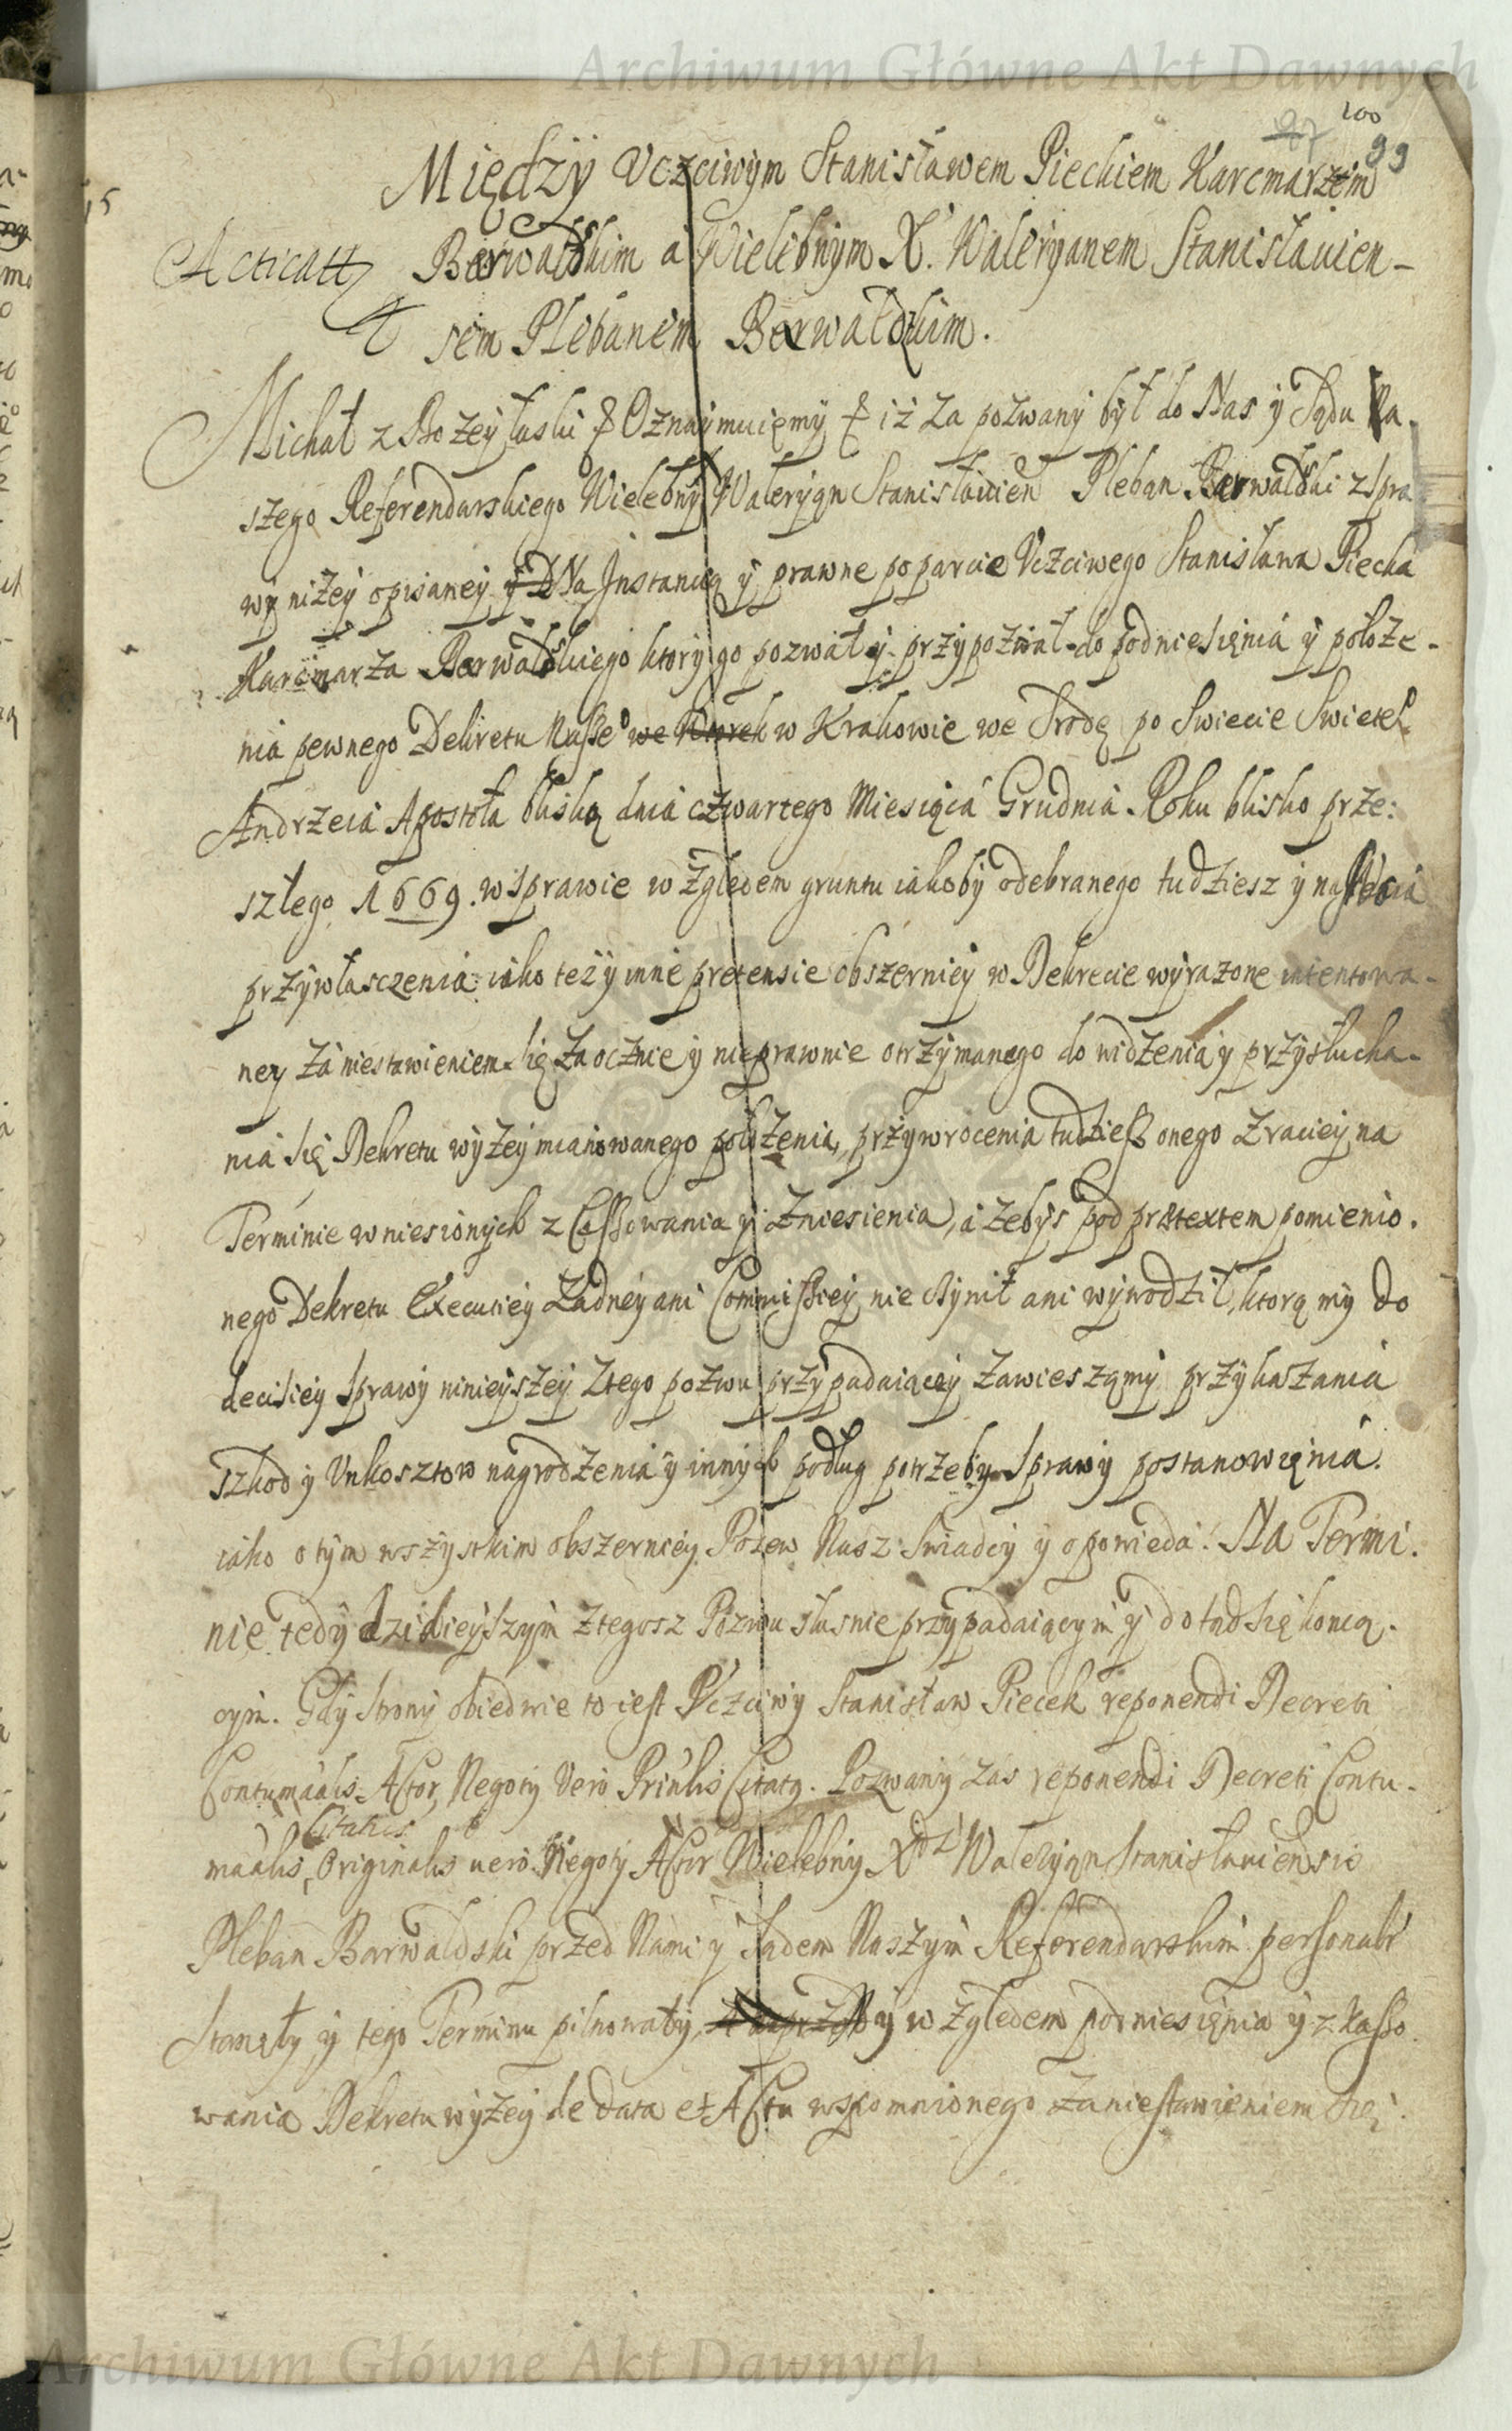 Archiwum Główne Akt Dawnych
100
97
99
Między Vczciwym Stanisławem Piechiem Karcmarzem
Acticatt
Barwałdskim á Wielebnym X. Waleryanem Stanisławien-
sem Plebanem Barwałdzkim.
Michał z Bożey łaski & Oznaymuiemy & iż za pozwany był do Nas y Sądu Na-
szego Referendarskiego Wielebny Waleryan Stanisławien Pleban Barwałdski z spra
wy niżey opisaney Na Instancią y prawne poparcie Vczciwego Stanisława Piecha
Karcmarza Barwałdskiego ktory go pozwał y przypozwał do podniesięnia y położe-
nia pewnego Dekretu Nasse° we Wtorek w Krakowie we Srodę po Swiecie Swiętek
Andrzeia Apostoła bliską dnia czwartego Miesiąca Grudnia Roku blisko prze:
szłego 1669. w sprawie w zględem gruntu iakoby odebranego tudziesz y na
przywłasczenia iako też y inne pretensie obszerniey w Dekrecie wyrażone intentowa-
ney zá niestawieniem się zaocznie y nieprawnie otrzymanego do widzenia y przysłucha-
nia się Dekretu wyżey mianowanego położenia, przywrocenia tudziesz onego z raciey na
Terminie wniesionych z Cassowania y Zniesienia, á żebys pod prætextem pomienio-
nego Dekretu Execuciey Zadney ani Commissiey nie czynił ani wywodził, ktorą my do
decisiey sprawy ninieyszey z tego pozwu przypadaiącey zawieszamy przykazania
szkod y Vnkosztow nagrodzenia y innych podług potrzeby sprawy postanowięnia.
iako o tym wszystkim obszerniey Pozew Nasz Swiadcy y opowieda. Na Termi-
nie tedy dzisieyszym z tegosz Pozwu słusnie przypadaiącym y dotąd się koncą-
cym. Gdy strony obiedwie to iest Vczciwy Stanisław Piecek reponendi Decreti
Contumalis Actor, Negotij Vero Prinlis Citatq. Pozwany zas reponendi Decreti Contu-
Citatus
maalis, Originalis uero Negotij Actor Wielebny Xdz Waleryan Stanisławiensis
Pleban Barwaldski przed Nami y Sądem Naszym Referendarskim personalr
Stanęły y tego Terminu pilnowały, y w zględem podniesięnia y z kasso-
wania Dekretu wyżey de data et Actu wspomnionego zaniestawieniem się
Archiwum Główne Akt Dawnych